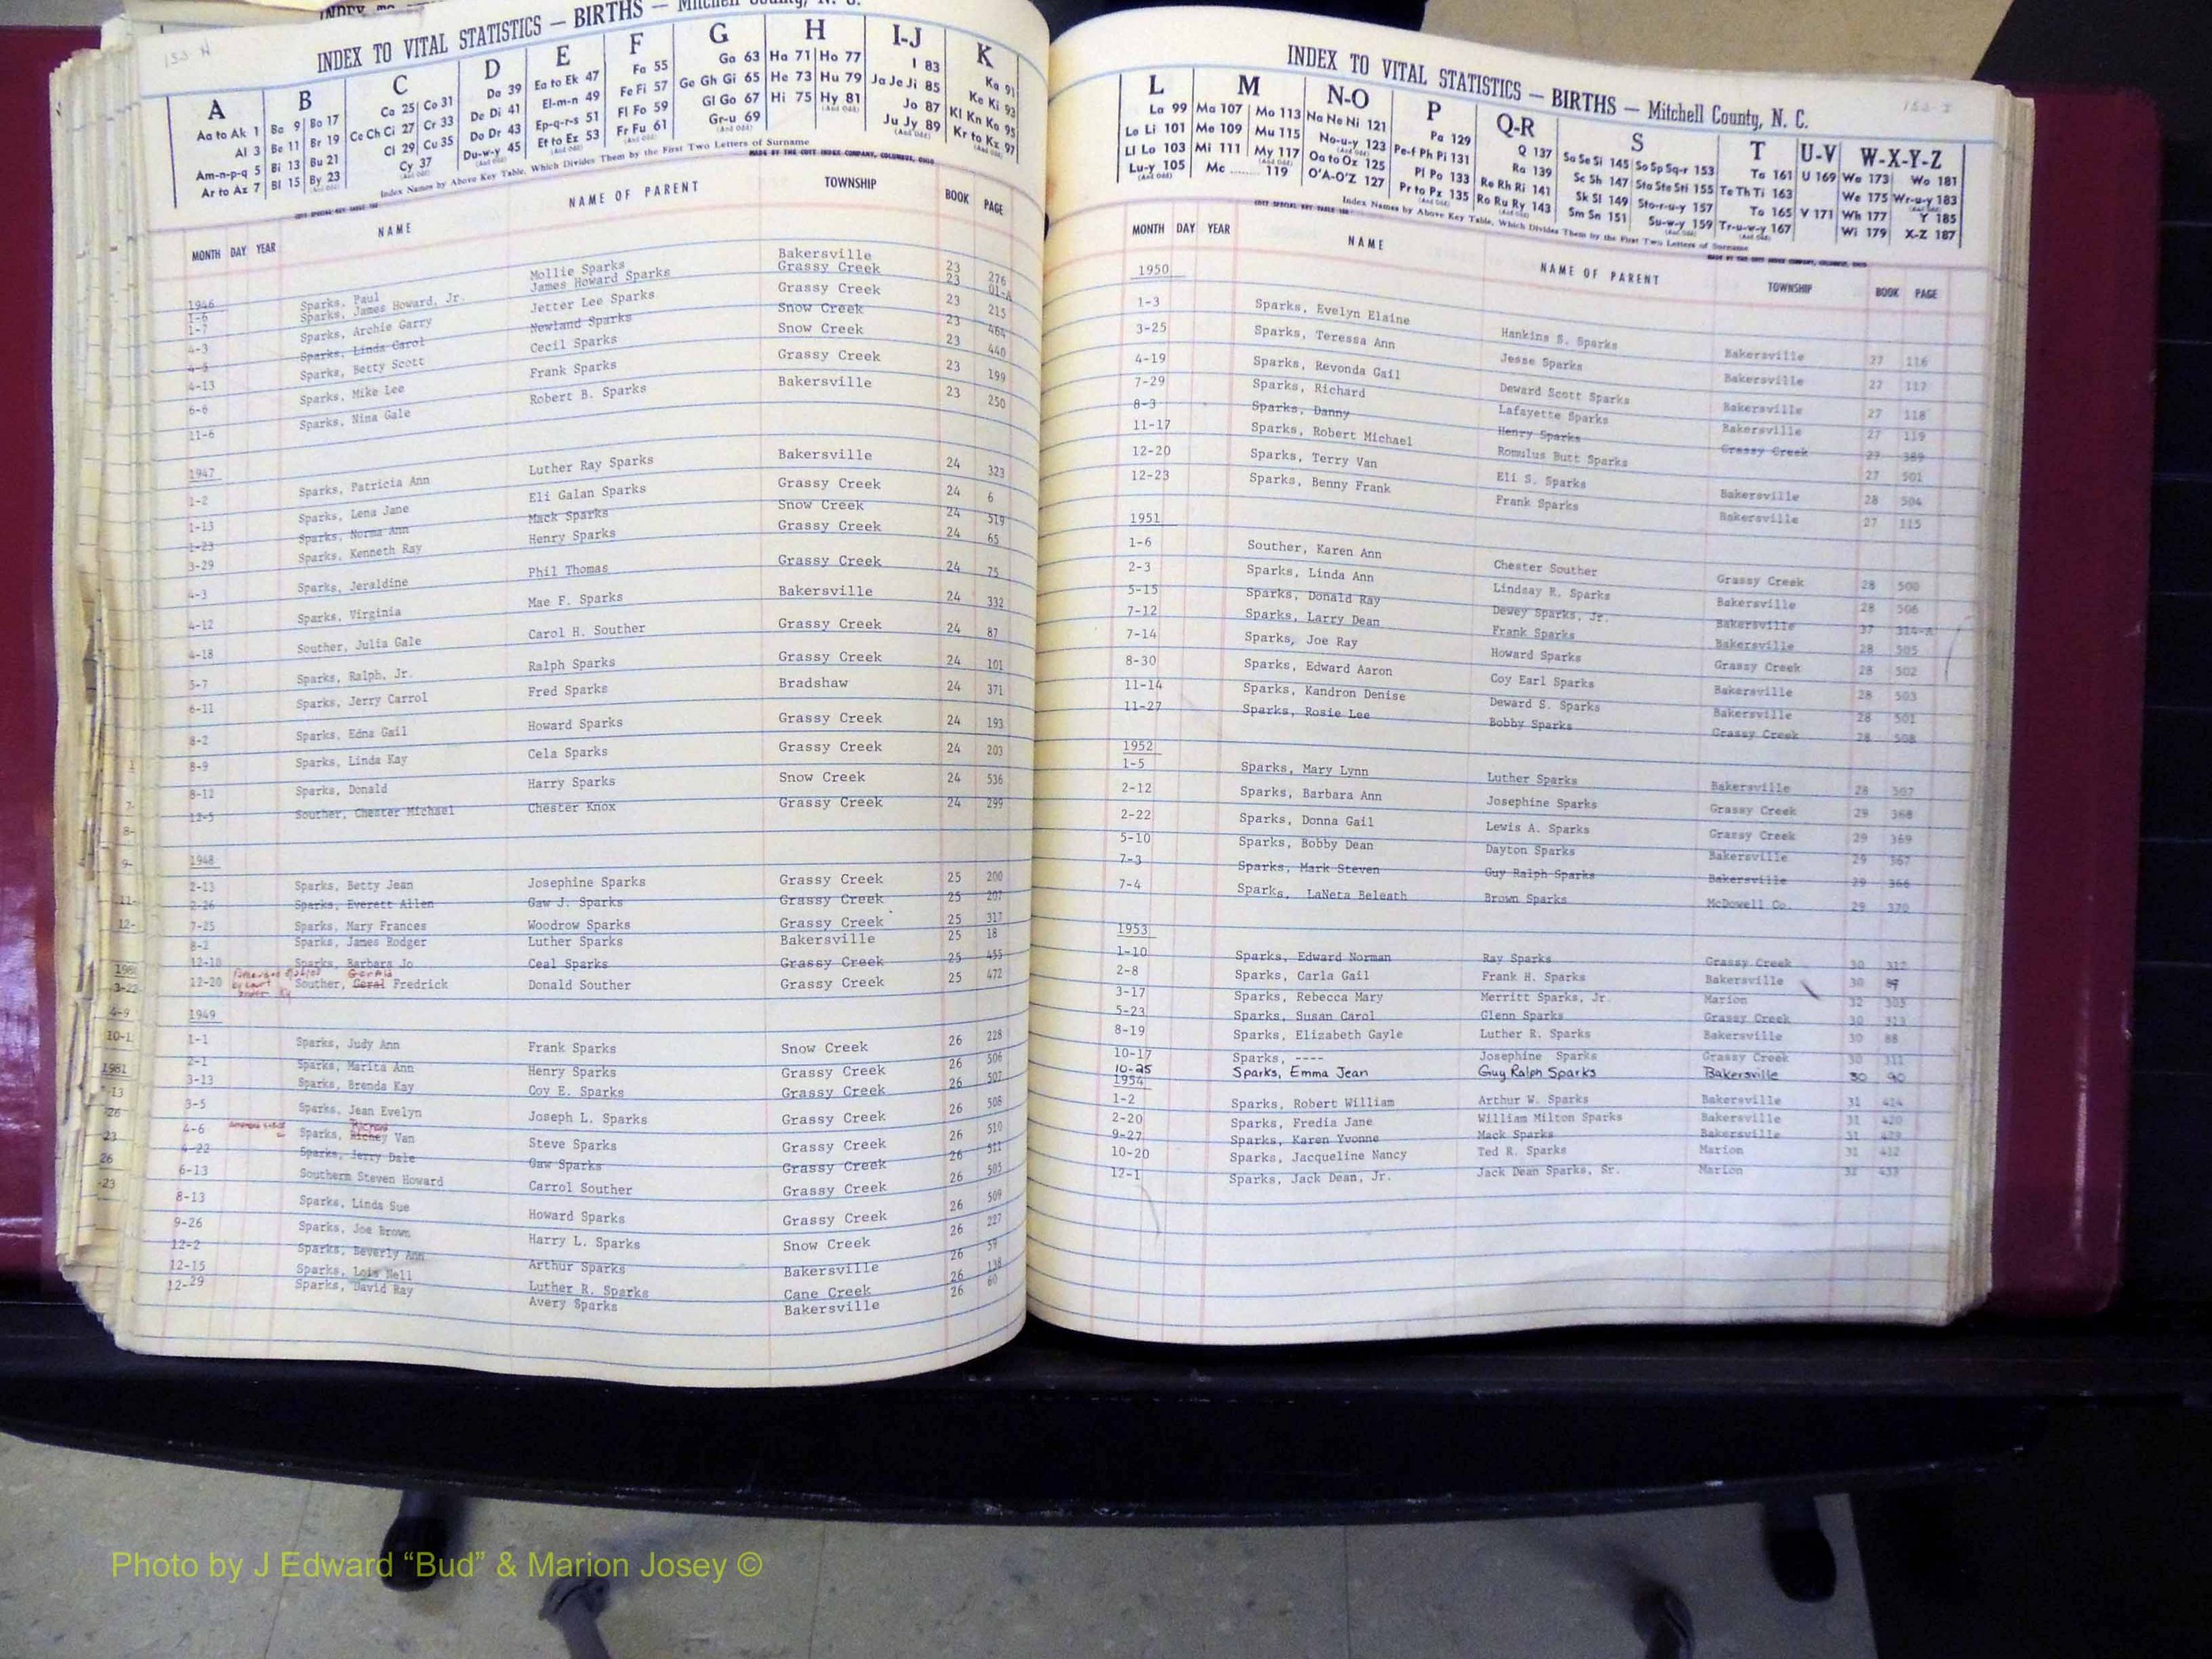 INDEX TO VITAL STATISTICS — BIRTHS — Mitchell County, N. C.
A B C D E F G H I-J K
Aa to Ak 1 Ba 9 Bo 17 Ca 25 Co 31 Da 39 Ea to Ek 47 Fa 55 Ga 63 Ha 71 Ho 77 I 83 Ka 91
Al 3 Be 11 Br 19 Ce Ch Ci 27 Cr 33 De Di 41 El-m-n 49 Fe Fi 57 Ge Gh Gi 65 He 73 Hu 79 Ja Je Ji 85 Ke Ki 93
Am-n-p-q 5 Bi 13 Bu 21 Cl 29 Cu 35 Do Dr 43 Ep-q-r-s 51 Fl Fo 59 Gl Go 67 Hi 75 Hy 81 Jo 87 Kl Kn Ko 95
Ar to Az 7 Bl 15 By 23 Cy 37 Du-w-y 45 Et to Ez 53 Fr Fu 61 Gr-u 69 Ju Jy 89 Kr to Kz 97
Index Names by Above Key Table, Which Divides Them by the First Two Letters of Surname
MADE BY THE COTT INDEX COMPANY, COLUMBUS, OHIO
MONTH DAY YEAR NAME NAME OF PARENT TOWNSHIP BOOK PAGE
1946
1-6 Sparks, Paul Mollie Sparks Bakersville 23 276
1-7 Sparks, James Howard, Jr. James Howard Sparks Grassy Creek 23 01-A
4-3 Sparks, Archie Garry Jetter Lee Sparks Grassy Creek 23 215
4-5 Sparks, Linda Carol Newland Sparks Snow Creek 23 464
4-13 Sparks, Betty Scott Cecil Sparks Snow Creek 23 440
6-6 Sparks, Mike Lee Frank Sparks Grassy Creek 23 199
11-6 Sparks, Nina Gale Robert B. Sparks Bakersville 23 250
1947
1-2 Sparks, Patricia Ann Luther Ray Sparks Bakersville 24 323
1-13 Sparks, Lena Jane Eli Galan Sparks Grassy Creek 24 6
1-23 Sparks, Norma Ann Mack Sparks Snow Creek 24 519
3-29 Sparks, Kenneth Ray Henry Sparks Grassy Creek 24 65
4-3 Sparks, Jeraldine Phil Thomas Grassy Creek 24 75
4-12 Sparks, Virginia Mae F. Sparks Bakersville 24 332
4-18 Souther, Julia Gale Carol H. Souther Grassy Creek 24 87
5-7 Sparks, Ralph, Jr. Ralph Sparks Grassy Creek 24 101
6-11 Sparks, Jerry Carrol Fred Sparks Bradshaw 24 371
8-2 Sparks, Edna Gail Howard Sparks Grassy Creek 24 193
8-9 Sparks, Linda Kay Cela Sparks Grassy Creek 24 203
8-12 Sparks, Donald Harry Sparks Snow Creek 24 536
12-5 Souther, Chester Michael Chester Knox Grassy Creek 24 299
1948
2-13 Sparks, Betty Jean Josephine Sparks Grassy Creek 25 200
2-26 Sparks, Everett Allen Gaw J. Sparks Grassy Creek 25 207
7-25 Sparks, Mary Frances Woodrow Sparks Grassy Creek 25 317
8-2 Sparks, James Rodger Luther Sparks Bakersville 25 18
12-10 Sparks, Barbara Jo Ceal Sparks Grassy Creek 25 455
Gerald
12-20 Souther, Geral Fredrick Donald Souther Grassy Creek 25 472
1949
1-1 Sparks, Judy Ann Frank Sparks Snow Creek 26 228
2-1 Sparks, Marita Ann Henry Sparks Grassy Creek 26 506
3-13 Sparks, Brenda Kay Coy E. Sparks Grassy Creek 26 507
3-5 Sparks, Jean Evelyn Joseph L. Sparks Grassy Creek 26 508
4-6 Sparks, Richey Van Steve Sparks Grassy Creek 26 510
4-22 Sparks, Jerry Dale Gaw Sparks Grassy Creek 26 511
6-13 Southerm Steven Howard Carrol Souther Grassy Creek 26 505
8-13 Sparks, Linda Sue Howard Sparks Grassy Creek 26 509
9-26 Sparks, Joe Brown Harry L. Sparks Snow Creek 26 227
12-2 Sparks, Beverly Ann Arthur Sparks Bakersville 26 59
12-15 Sparks, Lois Nell Luther R. Sparks Cane Creek 26 138
12-29 Sparks, David Ray Avery Sparks Bakersville 26 60
INDEX TO VITAL STATISTICS — BIRTHS — Mitchell County, N. C.
L M N-O P Q-R S T U-V W-X-Y-Z
La 99 Ma 107 Mo 113 Na Ne Ni 121 Pa 129 Q 137 Sa Se Si 145 So Sp Sq-r 153 Ta 161 U 169 Wa 173 Wo 181
Le Li 101 Me 109 Mu 115 No-u-y 123 Pe-f Ph Pi 131 Ra 139 Sc Sh 147 Sta Ste Sti 155 Te Th Ti 163 We 175 Wr-u-y 183
Ll Lo 103 Mi 111 My 117 Oa to Oz 125 Pl Po 133 Re Rh Ri 141 Sk Sl 149 Sto-r-u-y 157 To 165 V 171 Wh 177 Y 185
Lu-y 105 Mc 119 O'A-O'Z 127 Pr to Px 135 Ro Ru Ry 143 Sm Sn 151 Su-w-y 159 Tr-u-w-y 167 Wi 179 X-Z 187
Index Names by Above Key Table, Which Divides Them by the First Two Letters of Surname
MONTH DAY YEAR NAME NAME OF PARENT TOWNSHIP BOOK PAGE
1950
1-3 Sparks, Evelyn Elaine Hankins S. Sparks Bakersville 27 116
3-25 Sparks, Teressa Ann Jesse Sparks Bakersville 27 117
4-19 Sparks, Revonda Gail Deward Scott Sparks Bakersville 27 118
7-29 Sparks, Richard Lafayette Sparks Bakersville 27 119
8-3 Sparks, Danny Henry Sparks Grassy Creek 27 389
11-17 Sparks, Robert Michael Romulus Butt Sparks 27 501
12-20 Sparks, Terry Van Eli S. Sparks Bakersville 28 504
12-23 Sparks, Benny Frank Frank Sparks Bakersville 27 115
1951
1-6 Souther, Karen Ann Chester Souther Grassy Creek 28 500
2-3 Sparks, Linda Ann Lindsay R. Sparks Bakersville 28 506
5-15 Sparks, Donald Ray Dewey Sparks, Jr. Bakersville 37 314-A
7-12 Sparks, Larry Dean Frank Sparks Bakersville 28 505
7-14 Sparks, Joe Ray Howard Sparks Grassy Creek 28 502
8-30 Sparks, Edward Aaron Coy Earl Sparks Bakersville 28 503
11-14 Sparks, Kandron Denise Deward S. Sparks Bakersville 28 501
11-27 Sparks, Rosie Lee Bobby Sparks Grassy Creek 28 508
1952
1-5 Sparks, Mary Lynn Luther Sparks Bakersville 28 507
2-12 Sparks, Barbara Ann Josephine Sparks Grassy Creek 29 368
2-22 Sparks, Donna Gail Lewis A. Sparks Grassy Creek 29 369
5-10 Sparks, Bobby Dean Dayton Sparks Bakersville 29 367
7-3 Sparks, Mark Steven Guy Ralph Sparks Bakersville 29 366
7-4 Sparks, LaNeta Beleath Brown Sparks McDowell Co. 29 370
1953
1-10 Sparks, Edward Norman Ray Sparks Grassy Creek 30 312
2-8 Sparks, Carla Gail Frank H. Sparks Bakersville 30 89
3-17 Sparks, Rebecca Mary Merritt Sparks, Jr. Marion 32 305
5-23 Sparks, Susan Carol Glenn Sparks Grassy Creek 30 313
8-19 Sparks, Elizabeth Gayle Luther R. Sparks Bakersville 30 88
10-17 Sparks, ---- Josephine Sparks Grassy Creek 30 311
10-25 Sparks, Emma Jean Guy Ralph Sparks Bakersville 30 90
1954
1-2 Sparks, Robert William Arthur W. Sparks Bakersville 31 424
2-20 Sparks, Fredia Jane William Milton Sparks Bakersville 31 420
9-27 Sparks, Karen Yvonne Mack Sparks Bakersville 31 429
10-20 Sparks, Jacqueline Nancy Ted R. Sparks Marion 31 412
12-1 Sparks, Jack Dean, Jr. Jack Dean Sparks, Sr. Marion 31 433
Photo by J Edward “Bud” & Marion Josey ©